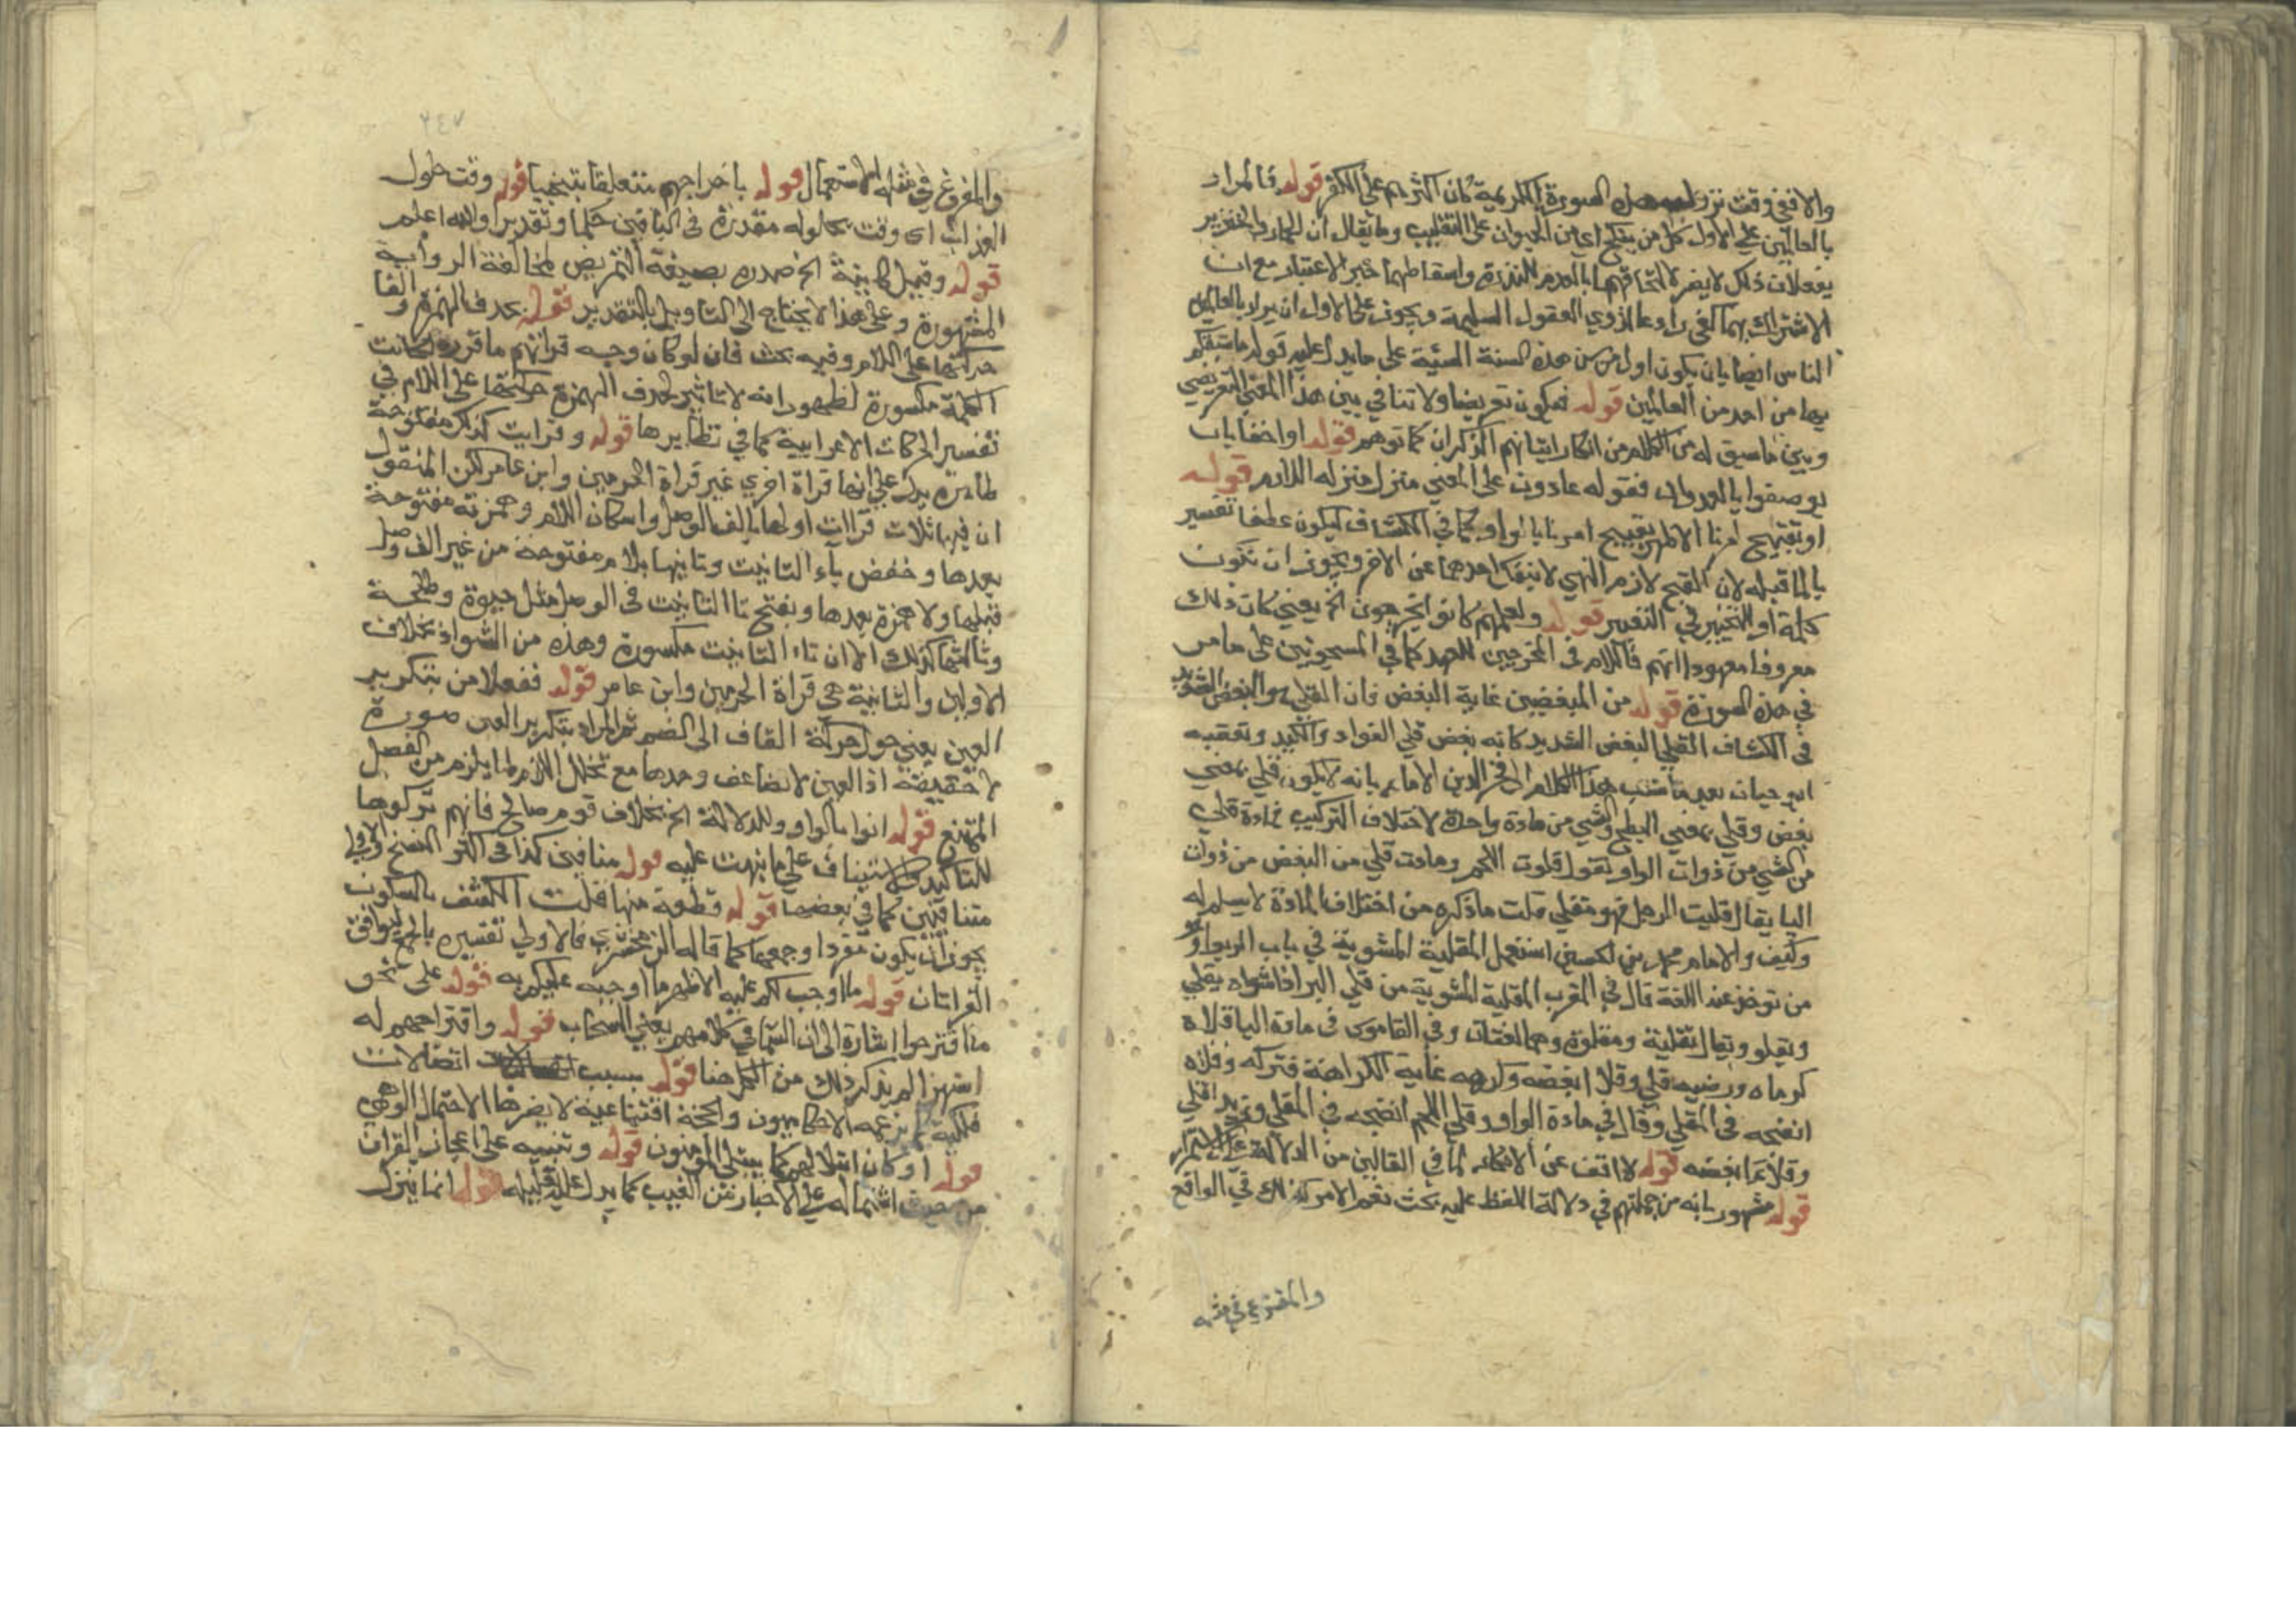 والا ففي وقت نزول هذه السورة الكريمة كان اكثرهم على الكفر قوله فالمراد
بالعالمين على الاول كل من ينكح اي من الحيوان على التغليب وما يقال ان الحمار والخنزير
يفعلان ذلك لا يضر لالتحاقهما بالعدم للندرة واسقاطهما حيز الاعتبار مع ان
الاشتراك بهما كفى رادعا لذوي العقول السليمة ويجوز على الاول ان يراد بالعالمين
الناس ايضا بان يكون اول من سن هذه السنة السيئة على ما يدل عليه قوله ما سبقكم
بها من احد من العالمين قوله فيكون تعريضا ولا تنافي بين هذا المعنى التعريضي
وبين ما سيق له من الكلام من انكار اتيانهم الذكران كما توهم قوله او احقا بان
يوصفوا بالعدوان فقوله عادون على المعنى منزل منزله اللازم قوله
او تقبيح امرنا الاظهر تقبيح امرنا بالواو كما في الكشاف ليكون عطفا تفسير
يا لما قبله لان القبح لازم النهي لا ينفك احدهما عن الاخر ويجوز ان تكون
كلمة او للتخيير في التعبير قوله ولعلهم كانوا يخرجون الخ يعني كان ذلك
معروفا معهودا لهم فاللام في المخرجين للعهد كما في المسجونين على ما مر
في هذه السورة قوله من المبغضين غاية البغض فان القلي هو البغض الشديد
في الكشاف القلي البغض الشديد كانه بغض قلي الفواد والكبد وتعقبه
ابو حيان بعد ما نسب هذا الكلام الى فخر الدين الامام بانه لا يكون قلي بمعني
بغض وقلي بمعني الطبخ والشي من مادة واحدة لاختلاف التركيب فمادة قلي
من الشي من ذوات الواو تقول قلوت اللحم ومادت قلي من البغض من ذوات
اليا يقال قليت الرجل فهو مقلي قلت ما ذكره من اختلاف المادة لا يسلم له
وكيف والامام محمد بن الحسن استعمل المقلية المشوية في باب الربوا وهو
من توخذ عند اللغة قال في المغرب المقلية المشوية من قلي البر اذا شواه يقلي
ويقلو ويقال مقلية ومقلوة وهما لغتان وفي القاموس في مادة الياء قلاه
كرماه ورضيه قلي وقلا ابغضه وكرهه غاية الكراهة فتركه وقلاه
انضجه في المقلي وقال في مادة الواو وقلي اللحم انضجه في المقلي
وقلا نما ابغضه قوله لا اقف عن الانكار لما في القالين من الدلالة على الاستمرار
قوله مشهور بانه من جملتهم في دلالة اللفظ عليه بحث نعم الامر كذلك في الواقع
والمفروغ في مثله
٢٤٧
والمفروغ في مثله الاستعمال قوله باخراجهم متعلقا بتنجينا قوله وقت حلول
العذاب اى وقت حلوله مقدرة في الباقين حكما وتقديرا والله اعلم
قوله وقيل كاينة الخ صدره بصيغة التمريض لمخالفة الرواية
المشهورة وعلى هذا لا يحتاج الى التاويل بالتقدير قوله بحذف الهمزة والقا
حركتها على اللام وفيه بحث فان لو كان وجه قراتهم ما قرره لكانت
الكلمة مكسورة لظهور انه لا تاثير لحذف الهمزة حركتها على اللام في
تفسير الحركات الاعرابية كما في نظايرها قوله وقرايت كذلك مفتوحة
ظاهره يدل على انها قراة اخري غير قراة الحرمين وابن عامر لكن المنقول
ان فيها ثلاث قراات اولها بالف الوصل واسكان اللام وهمزة مفتوحة
بعدها وخفض ياء التانيث وثانيها بلام مفتوحة من غير الف وصل
قبلها ولا همزة بعدها وبفتح تا التانيث في الوصل مثل حيوة وطلحة
وثالثها كذلك الا ان تاء التانيث مكسورة وهذه من الشواذ بخلاف
الاوليان والثانية هي قراة الحرمين وابن عامر قوله ففعلا من بتكرير
العين يعني حول حركة القاف الى الضم ثم المراد بتكرير العين صورة
لا حقيقة اذ العين لا تضاعف وحدها مع تخلل اللام لما يلزم من الفصل
الممتنع قوله اتوا بالواو وللدلالة الخ بخلاف قوم صالح فانهم تركوها
للتاكيد والاستيناف على ما نبهت عليه قوله منافين كذا في اكثر النسخ والاولى
متنافيين كما في بعضها قوله قطعة منها قلت الكشف بالسكون
يجوز ان يكون مفردا وجمعا كما قاله الزمخشري فالاولي تفسيره بالجمع ليوافق
القراتان قوله ما اوجب لكم عليه الاظهر ما اوجبه عليكم به قوله على نحو
ما اقترحوا اشارة الى ان السما في كلامهم يعني السحاب قوله واقتراحهم له
استهزا لم يذكر ذلك من اقترحنا قوله بسبب اتصالات
فلكية كما يزعمه الاحكاميون والحجة اقناعية لا يضرها الاحتمال الوهمي
قوله او كان ابتلا لهم كما يبتلي المؤمنون قوله وتنبيه على اعجاز القران
من حيث اشتماله على الاخبار عن الغيب كما يدل عليه قوله انما ينزل